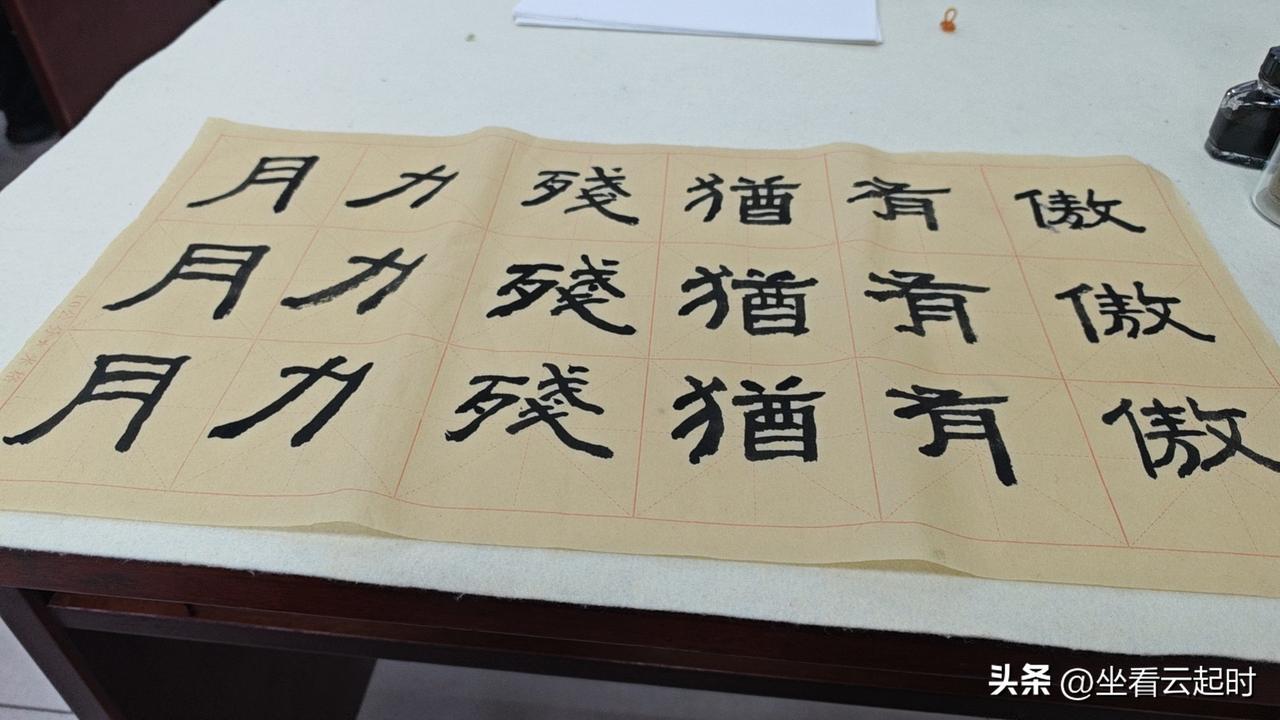 月力殘猶有傲
月力殘猶有傲
月力殘猶有傲
头条 @坐看云起时